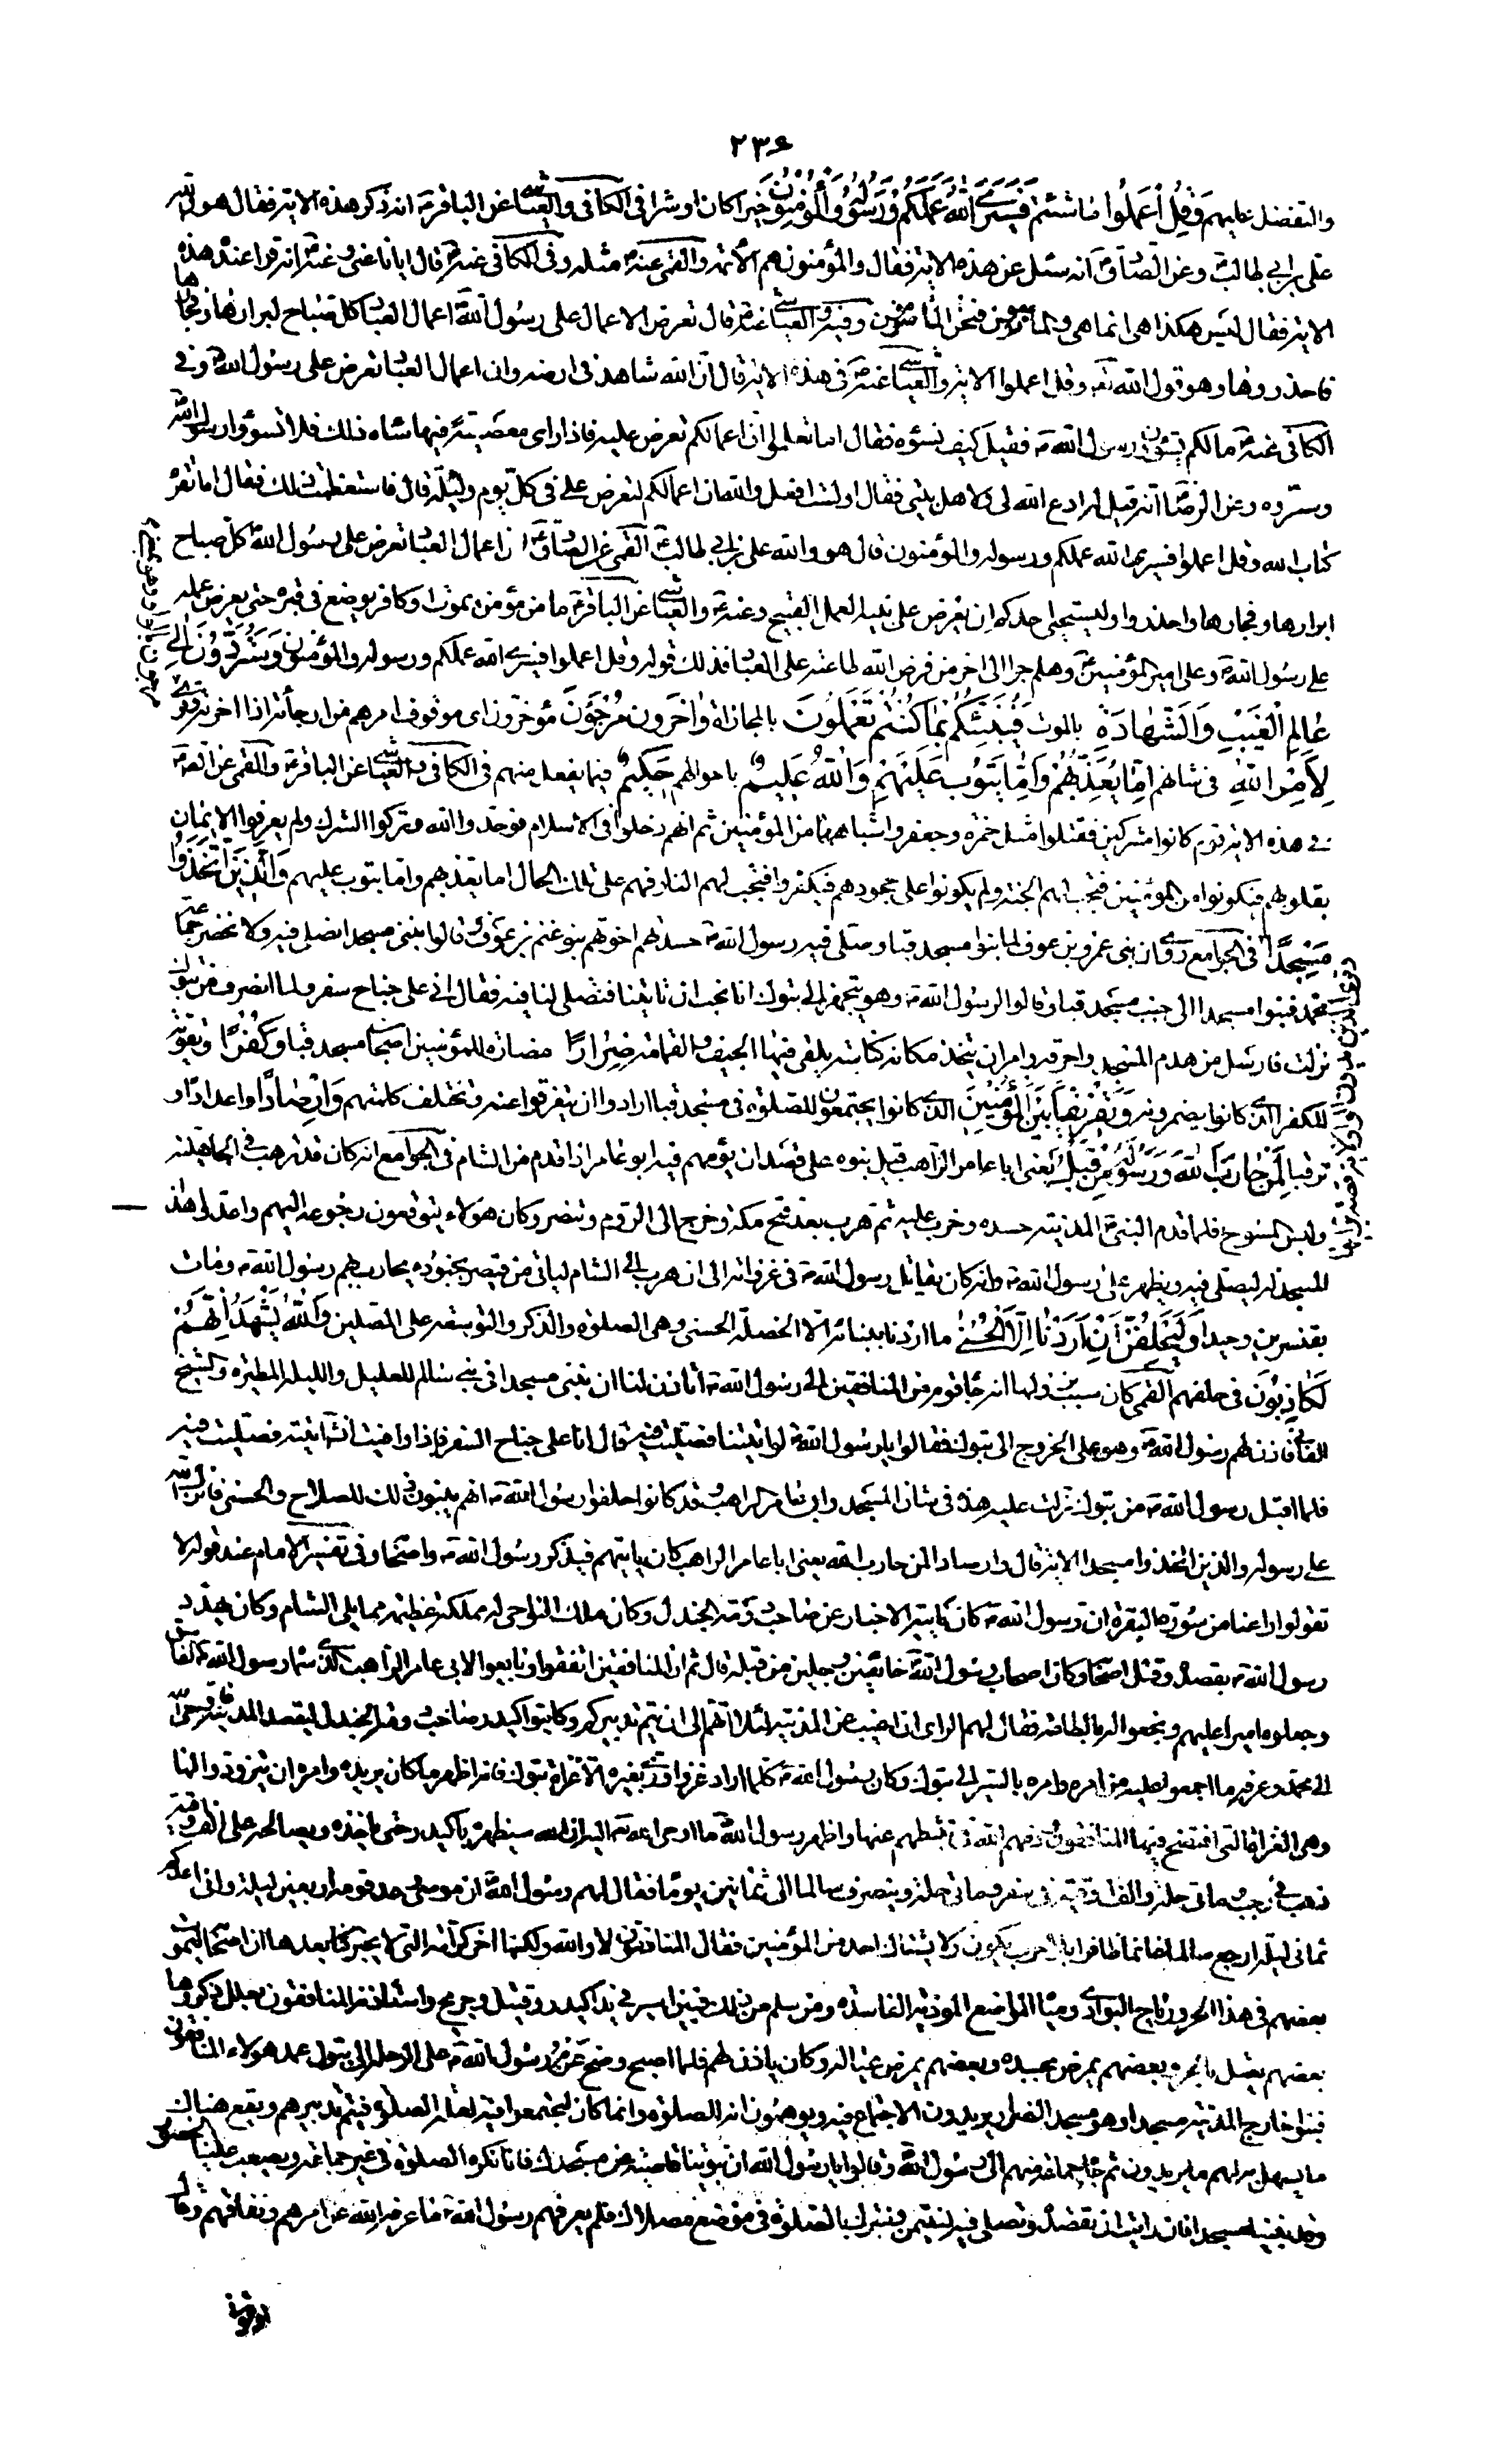 ٢٣٤
والتفضل عليهم وَقُلِ اعْمَلُوا ما شئتم فَسَيَرَى اللّٰهُ عَمَلَكُمْ وَرَسُولُهُ وَالْمُؤْمِنُونَ خيرا كان او شرا فى الكافى والعياشى عن الباقر انه ذكر هذه الاية فقال هو والله
على بن ابي طالب وعن الصادق انه سئل عن هذه الاية فقال والمؤمنون هم الأئمة والقمى عنه مثله وفى الكافى عنه قال ايانا عنى وعنه انه قرا عنده هذه
الاية فقال ليس هكذا هى انما هى والمأمونون فنحن المأمونون وفيه والعياشى عنه قال تعرض الاعمال على رسول الله اعمال العباد كل صباح ابرارها وفجارها
فاحذروها وهو قول الله تعه وقل اعملوا الاية والعياشى عنه فى هذه الاية قال ان الله شاهد فى ارضه وان اعمال العباد تعرض على رسول الله وفى
الكافى عنه مالكم تسؤون رسول الله فقيل كيف نسؤه فقال اما تعلمون ان اعمالكم تعرض عليه فاذا راى معصية فيها ساءه ذلك فلا تسؤوا رسول الله
وسروه وعن الرضا انه قيل له ادع الله لى ولاهل بيتى فقال اولست افعل والله ان اعمالكم لتعرض على فى كل يوم وليلة قال فاستعظمت ذلك فقال اما تقرء
كتاب الله وقل اعملوا فسيرى الله عملكم ورسوله والمؤمنون قال هو والله على بن ابي طالب القمى عن الصادق ان اعمال العباد تعرض على رسول الله كل صباح
ابرارها وفجارها فاحذروا وليستحيى احدكم ان يعرض على نبيه العمل القبيح وعنه والعياشى عن الباقر ما من مؤمن يموت او كافر يوضع فى قبره حتى يعرض عمله
على رسول الله وعلى امير المؤمنين وهلم جرا الى اخر من فرض الله طاعته على العباد فذلك قوله وقل اعملوا فسيرى الله عملكم ورسوله والمؤمنون وَسَتُرَدُّونَ إِلَى
عَالِمِ الْغَيْبِ وَالشَّهَادَةِ بالموت فَيُنَبِّئُكُمْ بِمَا كُنْتُمْ تَعْمَلُونَ بالمجازاة وَآخَرُونَ مُرْجَوْنَ مؤخرون اى موقوف امرهم من ارجأته اذا اخرته وقرئ
لِأَمْرِ اللّٰهِ فى شانهم إِمَّا يُعَذِّبُهُمْ وَإِمَّا يَتُوبُ عَلَيْهِمْ وَاللّٰهُ عَلِيمٌ باحوالهم حَكِيمٌ فيما يفعل منهم فى الكافى والعياشى عن الباقر والقمى عن الصادق
فى هذه الاية قوم كانوا مشركين فقتلوا مثل حمزة وجعفر واشباههما من المؤمنين ثم انهم دخلوا فى الاسلام فوحدوا الله وتركوا الشرك ولم يعرفوا الايمان
بقلوبهم فيكونوا من المؤمنين فتجب لهم الجنة ولم يكونوا على جحودهم فيكفروا فتجب لهم النار فهم على تلك الحال اما يعذبهم واما يتوب عليهم وَالَّذِينَ اتَّخَذُوا
مَسْجِدًا فى الجوامع روى ان بنى عمرو بن عوف لما بنوا مسجد قبا وصلى فيه رسول الله حسدتهم اخوتهم بنو غنم بن عوف وقالوا نبنى مسجدا نصلى فيه ولا نحضر جماعة
محمد فبنوا مسجدا الى جنب مسجد قبا وقالوا لرسول الله وهو يتجهز الى تبوك انا نحب ان تاتينا فتصلى لنا فيه فقال انى على جناح سفر ولما انصرف من تبوك
نزلت فارسل من هدم المسجد واحرقه وامر ان يتخذ مكانه كناسة يلقى فيها الجيف والقمامة ضِرَارًا مضارة للمؤمنين اصحاب مسجد قبا وَكُفْرًا وتقوية
للكفر الذى كانوا يضمرونه وَتَفْرِيقًا بَيْنَ الْمُؤْمِنِينَ الذى كانوا يجتمعون للصلوة فى مسجد قبا ارادوا ان يتفرقوا عنه وتختلف كلمتهم وَإِرْصَادًا واعدادا و
ترقبا لِمَنْ حَارَبَ اللّٰهَ وَرَسُولَهُ مِنْ قَبْلُ يعنى ابا عامر الراهب قيل بنوه على قصد ان يؤمهم فيه ابو عامر اذا قدم من الشام فى الجوامع انه كان قد ترهب فى الجاهلية
ولبس المسوح فلما قدم النبى المدينة حسده وحزب عليه ثم هرب بعد فتح مكة وخرج الى الروم وتنصر وكان هؤلاء يتوقعون رجوعه اليهم واعدوا هذا
المسجد له ليصلى فيه ويظهر على رسول الله وانه كان يقاتل رسول الله فى غزواته الى ان هرب الى الشام لياتى من قيصر بجنود يحارب بهم رسول الله ومات
بقنسرين وحيدا وَلَيَحْلِفُنَّ إِنْ أَرَدْنَا إِلَّا الْحُسْنَىٰ ما اردنا ببنائه الا الخصلة الحسنى وهى الصلوة والذكر والتوسعة على المصلين وَاللّٰهُ يَشْهَدُ إِنَّهُمْ
لَكَاذِبُونَ فى حلفهم القمى كان سبب نزولها انه جاء قوم من المنافقين الى رسول الله اتاذن لنا ان نبنى مسجدا فى بنى سالم للعليل والليلة المطيرة والشيخ
الفانى فاذن لهم رسول الله وهو على الخروج الى تبوك فقالوا يا رسول الله لو اتيتنا فصليت فيه قال انا على جناح السفر فاذا وافيت انشاء الله اتيته فصليت فيه
فلما اقبل رسول الله من تبوك نزلت عليه هذه فى شان المسجد وابى عامر الراهب وقد كانوا حلفوا لرسول الله انهم يبنون ذلك للصلاح والحسنى فانزل الله
على رسوله والذين اتخذوا مسجدا الاية قال وارصادا لمن حارب الله يعنى ابا عامر الراهب كان ياتيهم فيذكر رسول الله واصحابه وفى تفسير الامام عند قوله لا
تقولوا راعنا من سورة البقرة ان رسول الله كان ياتيه الاخبار عن صاحب دومة الجندل وكان ملك النواحى له مملكة عظيمة مما يلى الشام وكان يهدد
رسول الله بقصده وقتل اصحابه وكان اصحاب رسول الله خائفين وجلين من قبله قال ثم ان المنافقين اتفقوا وبايعوا لابى عامر الراهب الذى سماه رسول الله الفاسق
وجعلوه اميرا عليهم وبخعوا له بالطاعة فقال لهم الراى ان اغيب عن المدينة لئلا اتهم الى ان يتم تدبيركم وكاتبوا اكيدر صاحب دومة الجندل ليقصد المدينة فاوحى الله
الى محمد وعرفه ما اجمعوا عليه من امره وامره بالسير الى تبوك وكان رسول الله كلما اراد غزوا ورى بغيره الا غزاة تبوك فانه اظهر ما كان يريده وامرهم ان يتزودوا لها
وهى الغزاة التى افتضح فيها المنافقون وذمهم الله فى تثبيطهم عنها واظهر رسول الله ما اوحى الله تعه اليه ان الله سيظهره باكيدر حتى ياخذه ويصالحه على الف اوقية
ذهب فى رجب ومأتى حلة والف اوقية فى صفر ومأتى حلة وينصرف سالما الى ثمانين يوما فقال لهم رسول الله ان موسى وعد قومه اربعين ليلة وانى اعدكم
ثمانين ليلة ارجع سالما غانما ظافرا بلا حرب يكون ولا يشتاك احد من المؤمنين فقال المنافقون لا والله ولكنها اخر كراته التى لا ينجبر بعدها ان اصحابه ليموت
بعضهم فى هذا الحر ورياح البوادى ومياه المواضع الموذية الفاسدة ومن سلم من ذلك فبين اسير فى يد اكيدر وقتيل وجريح واستاذنه المنافقون بعلل ذكروها
بعضهم يعتل بالحر وبعضهم بمرض بجسده وبعضهم بمرض عياله وكان ياذن لهم فلما اصبح وصح عزم رسول الله على الرحلة الى تبوك عمد هولاء المنافقون
فبنوا خارج المدينة مسجدا وهو مسجد الضرار يريدون الاجتماع فيه ويوهمون انه للصلوة وانما كان ليجتمعوا فيه لعلة الصلوة فيتم تدبيرهم ويقع هناك
ما يسهل به لهم ما يريدون ثم جاء جماعة منهم الى رسول الله وقالوا يا رسول الله ان بيوتنا قاصية عن مسجدك فانا نكره الصلوة فى غير جماعة ويصعب علينا الحضور
وقد بنينا مسجدا فان رايت ان تقصده وتصلى فيه لنتيمن ونتبرك بالصلوة فى موضع مصلاك فلم يعرفهم رسول الله ما عرفه الله من امرهم ونفاقهم وقال